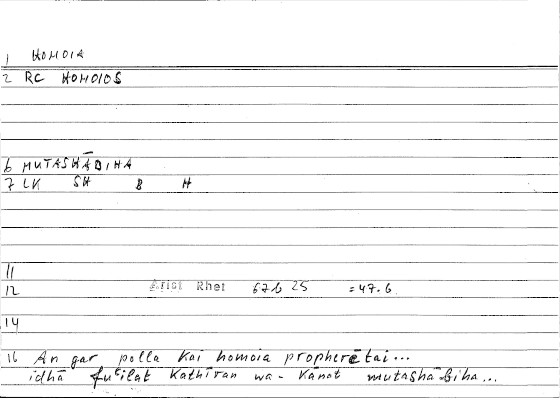 1 HOMOIA
2 RC HOMOIOS
6 MUTASHĀBIHA
7 LK SH B H
11
12 Arist Rhet 67b 25 = 47.6
14
16 An gar polla kai homoia propherētai...
idhā fuʿilat kathīran wa-kānat mutashābiha...